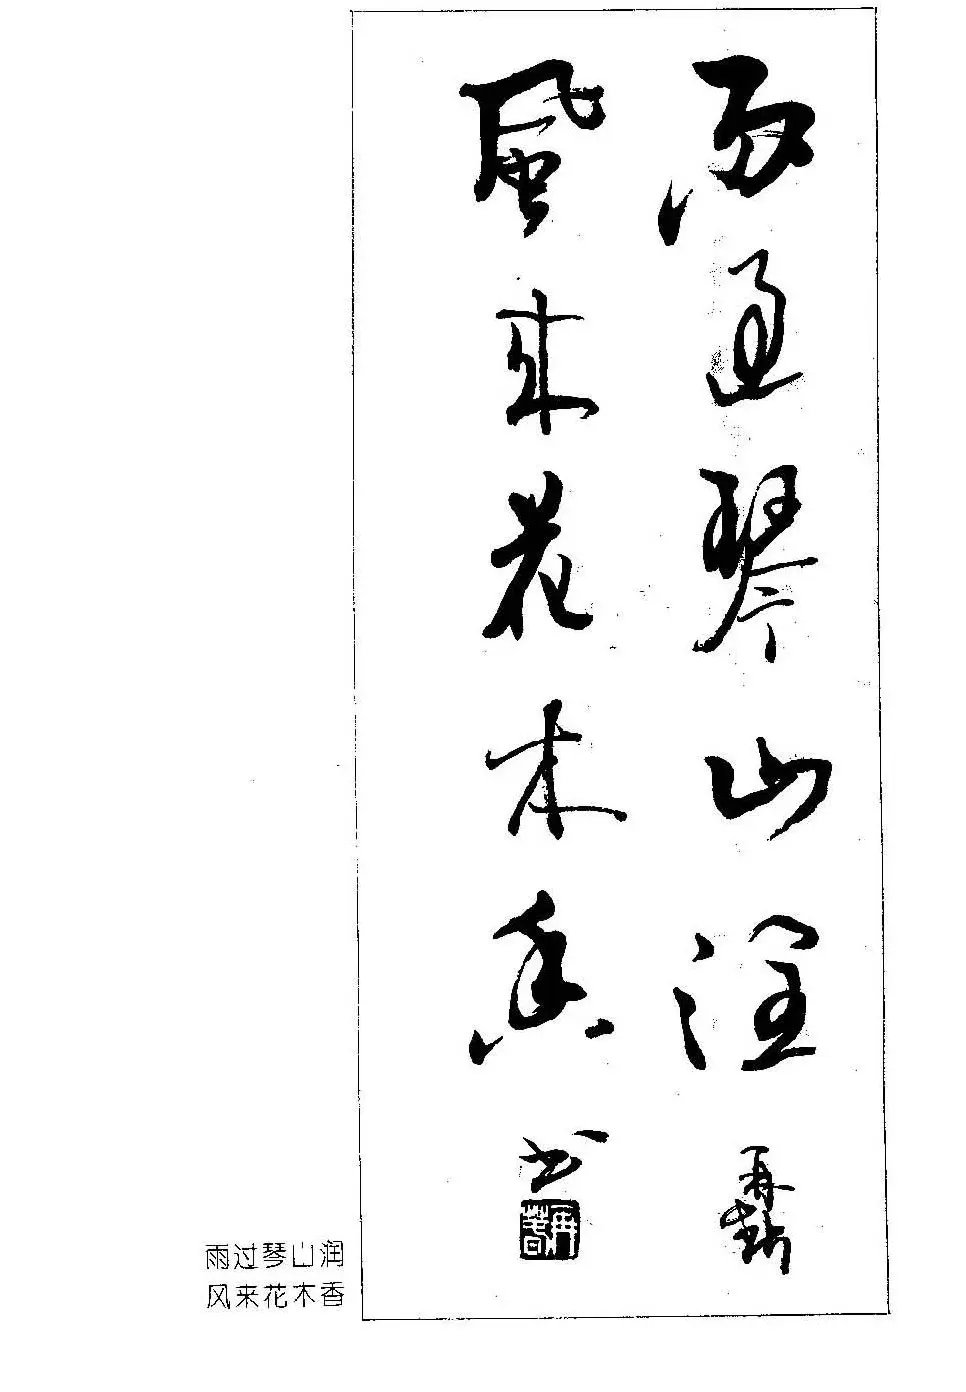 雨過琴山潤
再
風来花木香
书
雨过琴山润
风来花木香